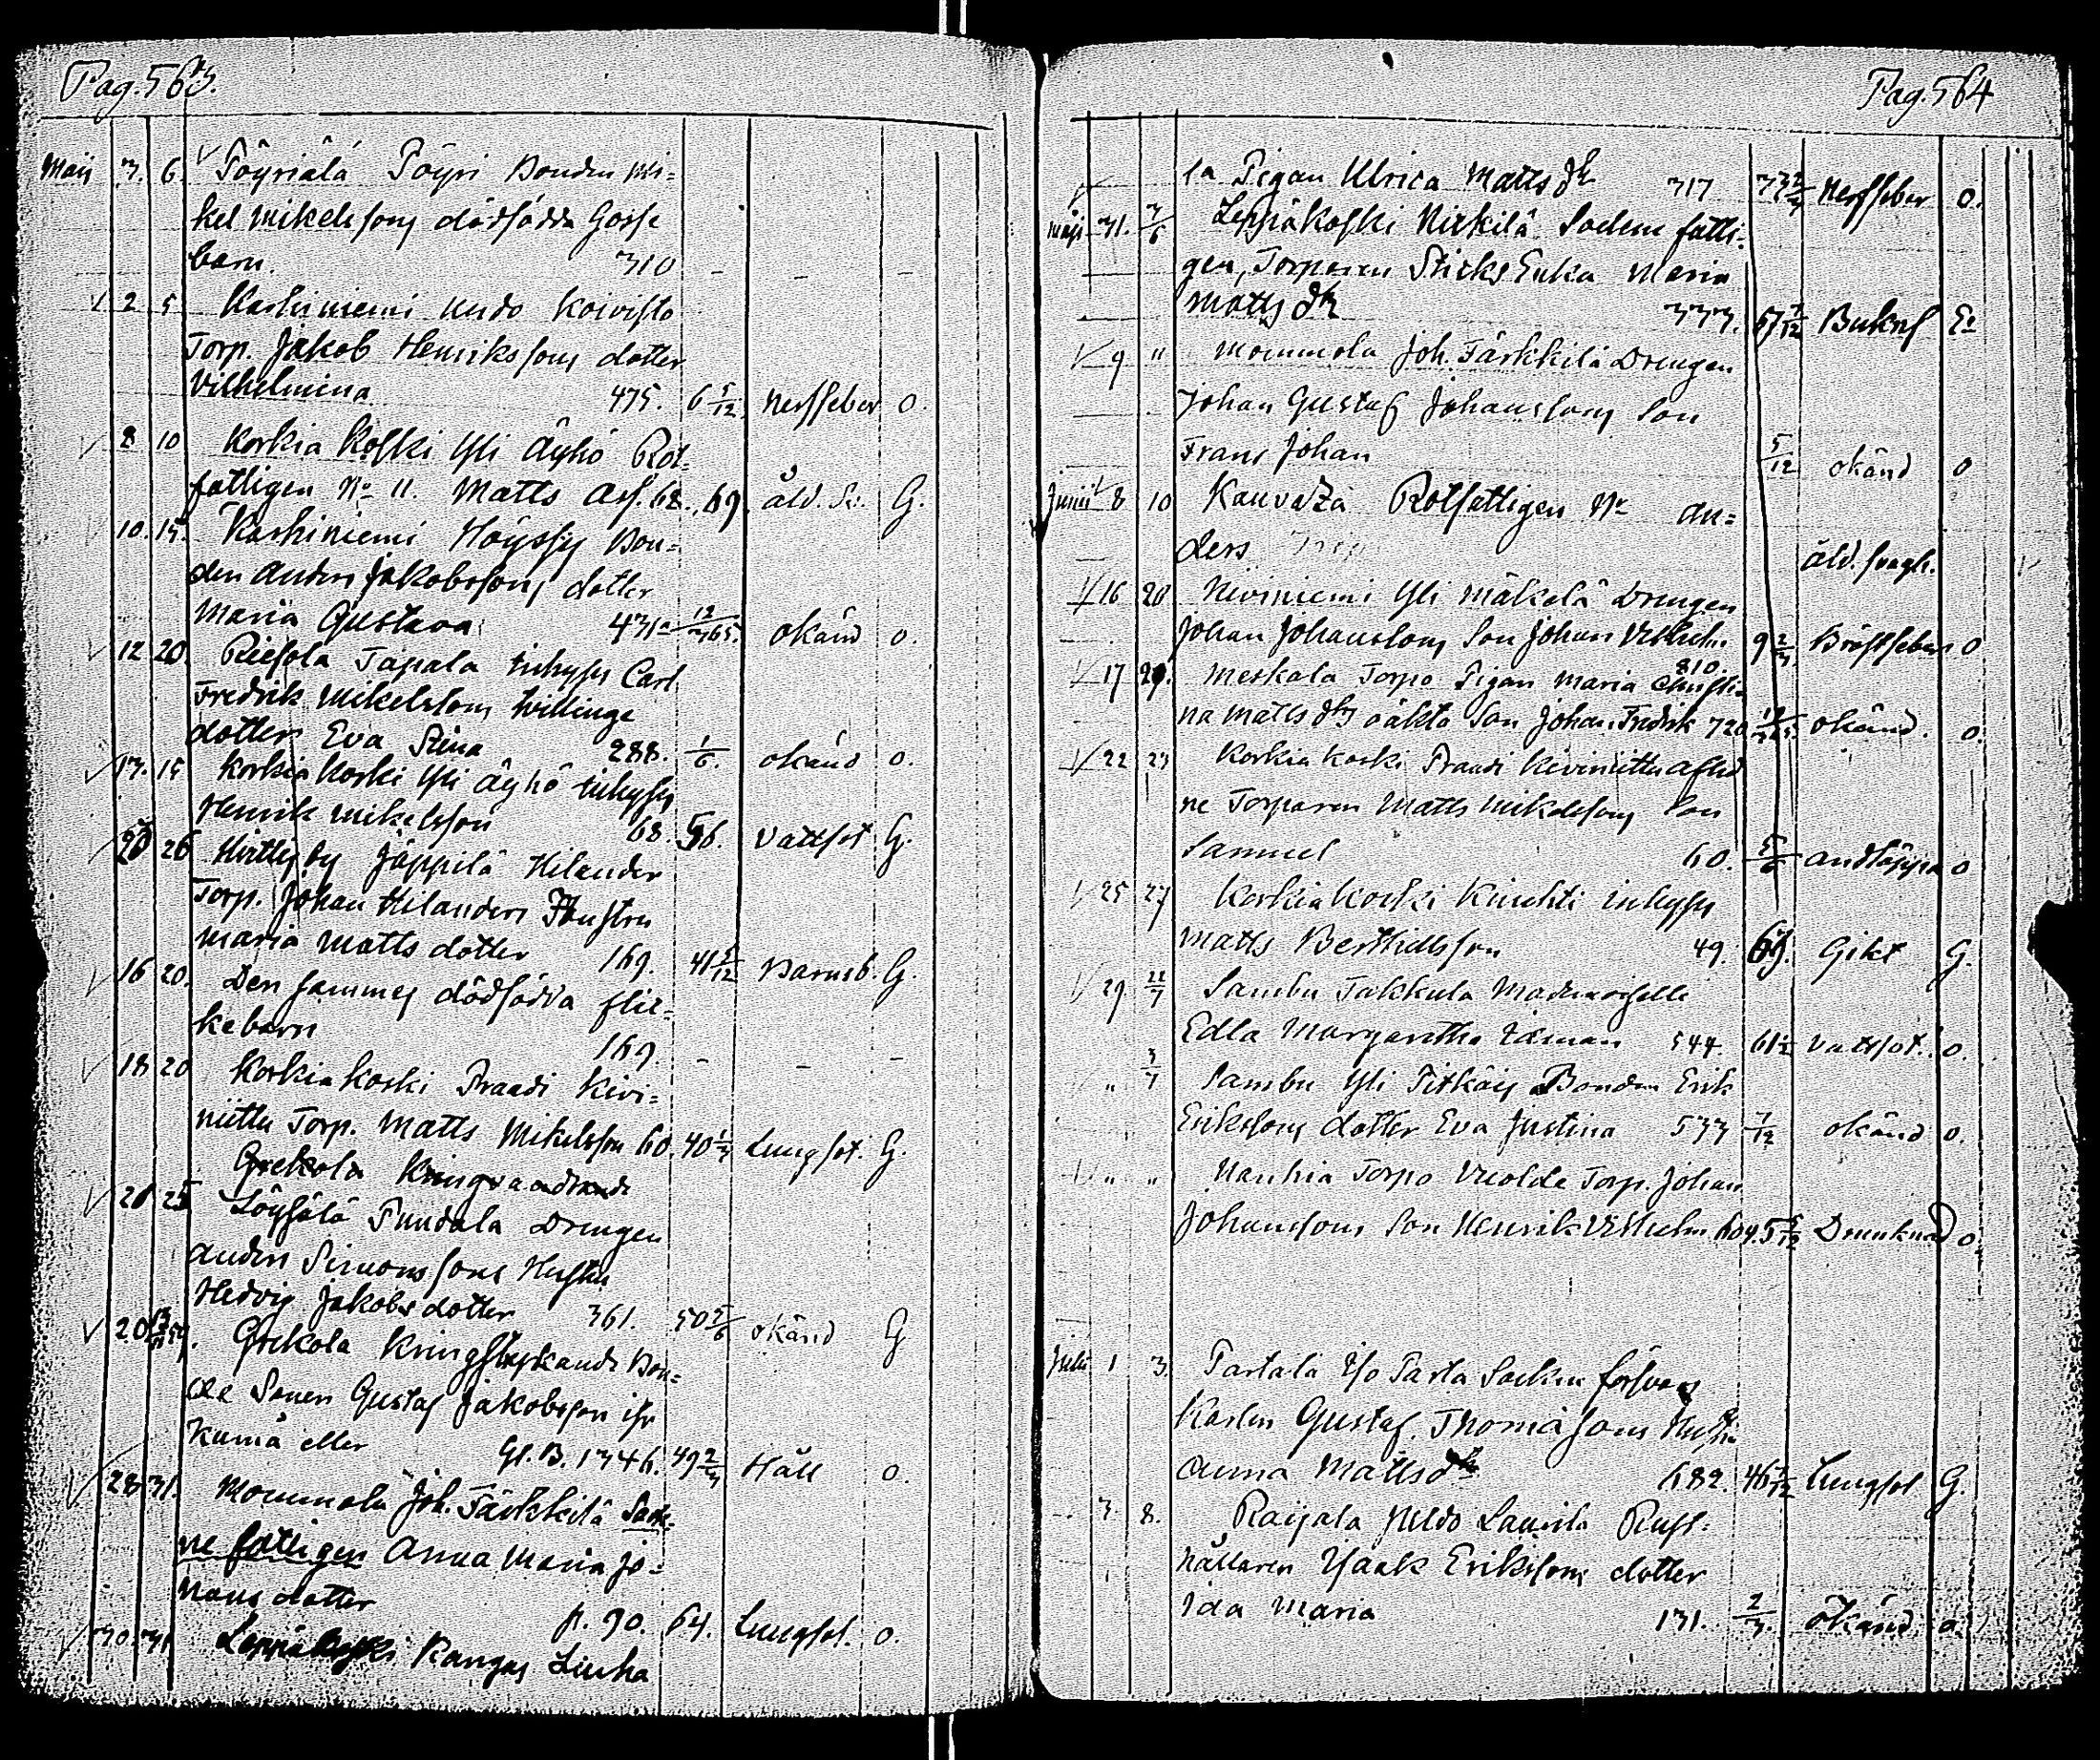 Pag. 563.
Maij 3. 6. Pöyriälä Pöyri Bonden Mi=
kel Mikelssons dödfödda Gosse
barn. 310 - - -
2 5 Karhiniemi Uudo Koivisto
Torp. Jakob Henrikssons dotter
Vilhelmina 475. 6 5/12 Nerffeber o.
8 10 Korkia koski Yli Äyhö Rot=
fattigen No 11. Matts Asf. 68. 69. åld. Sv. G.
10. 15. Karhiniemi Höyssys Bon=
den Anders Jakobssons dotter
Maria Gustava 431. 12/365. okänd o.
12 20. Riesola Tapala inhyses Carl
Fredrik Mikelssons tvillinge
dotter Eva Stina 288. 1/6. okänd o.
13. 15 Korkia koski Yli Äyhö inhyses
Henrik Mikelsson 68. 56. Vattsot G.
20 26 Huittis by Jäppilä Hilander
Torp. Johan Hilanders Hustru
Maria Matts dotter 169. 41 5/12 Barnsb. G.
16 20. Den sammes dödfödda flic=
kebarn 169. - - -
18 20 Korkia koski Praadi Kivi=
niittu Torp. Matts Mikelsson 60. 40 1/3 Lungsot. G.
Grekola
21 25 Löysälä Pundala Drengen
Anders Simonssons Hustru
Hedvig Jakobs dotter 361. 50 5/6 okänd G
20 Grekola Bon=
de Sonen Gustaf Jakobsson ifr
Kumä eller Gl. B. 1346. 49 2/3 Håll o.
28 31. Mommola Joh. Tärkkilä Sock=
ne fattigen Anna Maria Jo=
hans dotter p. 90. 64. Lungsot. o.
30. 31 Leppäkoski Kangas Liuha
Pag. 564
la Pigan Ulrica Matts dr 317 33 2/3 Nerffeber o.
Maji 31. 3/6 Leppäkoski Nikkilä Sockne fatti=
gen, Torparen Sticks Enka Maria
Matts dr 333. 67 7/12 Bukref E
9 " Mommola Joh. Tärkkilä Drengen
Johan Gustaf Johanssons Son
Frans Johan 5/12 okänd o
Junii 8 10 Kanvaza Rotfattigen No An=
ders åld. svagh.
16 20 Niviniemi Yli Mäkelä Drengen
Johan Johanssons Son Johan Vilhelm 810. 9 2/3 Bröstfeber o
17 29. Meskala Torpo Pigan Maria Christi=
na Matts drs oäkta Son Johan Fredrik 720 12/365. okänd. o.
22 23 Korkia koski Praadi Kiviniittu Aflid
ne Torparen Matts Mikelssons Son
Samuel 60. 5/6 andtäppa o
25 27 Korkia koski Kinchti inhyses
Matts Berthillsson 49. 69. Gikt G.
29. 22/7 Sambu Takkula Mademoiselle
Edla Margaretha Edman 544. 61 1/2 Vattsot. o.
" 3/7 Sambu Yli Pitkäis Bonden Erik
Erikssons dotter Eva Justina 533 7/12 okänd o.
" " Nanhia Torpo Uuolde Torp. Johan
Johanssons Son Henrik Vilhelm 604. 5 5/12 Drunknad o.
Julii 1 3. Partala Iso Parta Socken försvars
Karlen Gustaf Thomassons Hustru
Anna Mattsdr 682. 46 7/12 Lungsot G.
3. 8. Raijala Uudo Laurila Rust=
hållaren Isaak Erikssons dotter
Ida Maria 131. 2/3. okänd o.